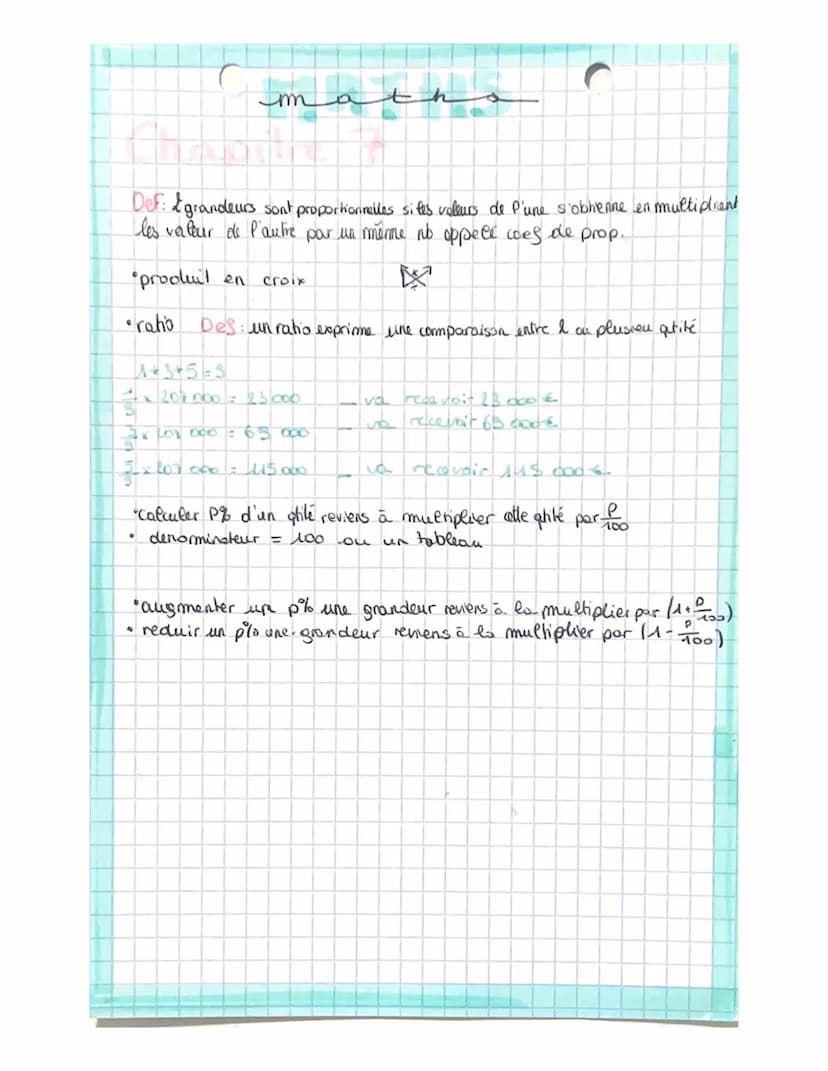 MATHS
maths
Chapitre 7
Def: 2 grandeurs sont proportionnelles si les valeurs de l'une s'obtienne en multipliant
les valeur de l'autre par un même nb appelé coef de prop.
•produit en croix
•ratio Def: un ratio exprime une comparaison entre 2 ou plusieu qtité
1+3+5=9
1/9 x 207 000 = 23 000 _ va recevoir 23 000 €
3/9 x 207 000 = 69 000 _ va recevoir 69 000 €
5/9 x 207 000 = 115 000 _ va recevoir 115 000 €.
•calculer P% d'un qtité reviens à multiplier cette qtité par P/100
• denominateur = 100 ou un tableau
•augmenter un p% une grandeur reviens à la multiplier par (1+p/100)
• reduir un p% une grandeur reviens à la multiplier par (1-p/100)